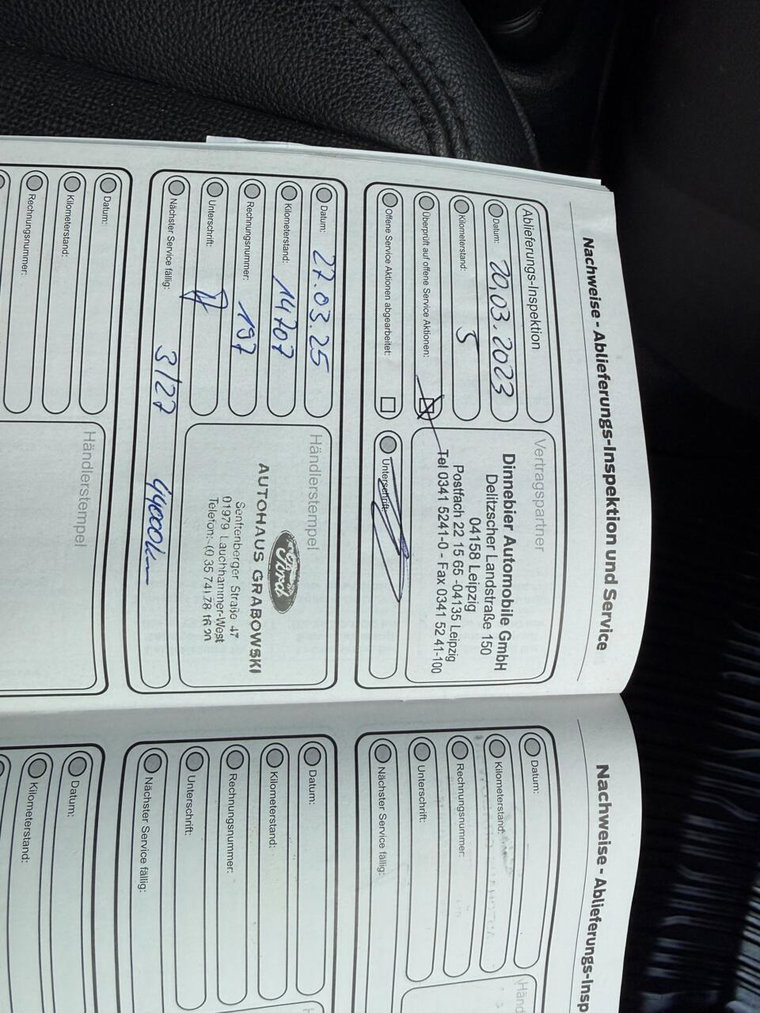 Nachweise - Ablieferungs-Inspektion und Service
Ablieferungs-Inspektion
Datum: 20.03.2023
Kilometerstand: 5
Überprüft auf offene Service Aktionen:
Offene Service Aktionen abgearbeitet:
Vertragspartner
Dinnebier Automobile GmbH
Delitzscher Landstraße 150
04158 Leipzig
Postfach 22 15 65 -04135 Leipzig
Tel 0341 5241-0 - Fax 0341 52 41-100
Unterschrift:
Datum: 27.03.25
Kilometerstand: 14707
Rechnungsnummer: 197
Unterschrift:
Nächster Service fällig: 3/27 44000km
Händlerstempel
Ford
AUTOHAUS GRABOWSKI
Senftenberger Straße 47
01979 Lauchhammer-West
Telefon: (0 35 74) 78 16 20
Datum:
Kilometerstand:
Rechnungsnummer:
Händlerstempel
Nachweise - Ablieferungs-Insp
Datum:
Kilometerstand:
Rechnungsnummer:
Unterschrift:
Nächster Service fällig:
Händ
Datum:
Kilometerstand:
Rechnungsnummer:
Unterschrift:
Nächster Service fällig:
H
Datum:
Kilometerstand: